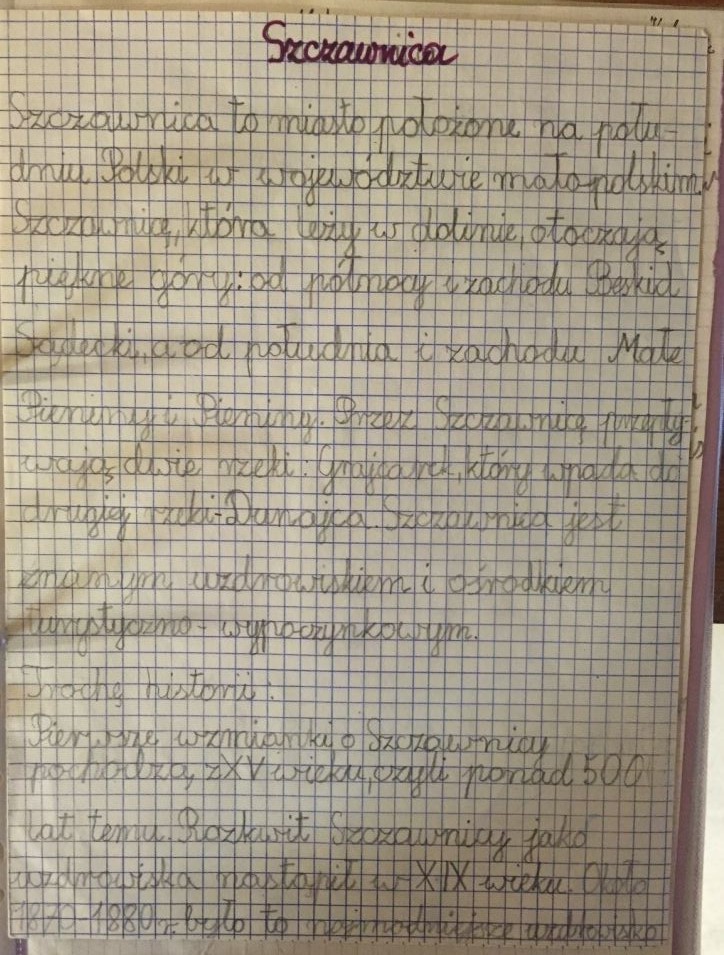 Szczawnica
Szczawnica to miasto położone na połu-
dniu Polski w województwie małopolskim.
Szczawnicę, która leży w dolinie, otoczają
piękne góry: od północy i zachodu Beskid
Sądecki, a od południa i zachodu Małe
Pieniny i Pieniny. Przez Szczawnicę przepły-
wają dwie rzeki: Grajcarek, który wpada do
drugiej rzeki-Dunajca. Szczawnica jest
znanym uzdrowiskiem i ośrodkiem
turystyczno-wypoczynkowym.
Trochę historii:
Pierwsze wzmianki o Szczawnicy
pochodzą z XV wieku, czyli ponad 500
lat temu. Rozkwit Szczawnicy jako
uzdrowiska nastąpił w XIX wieku. Około
1870-1880 r. było to najmodniejsze uzdrowisko